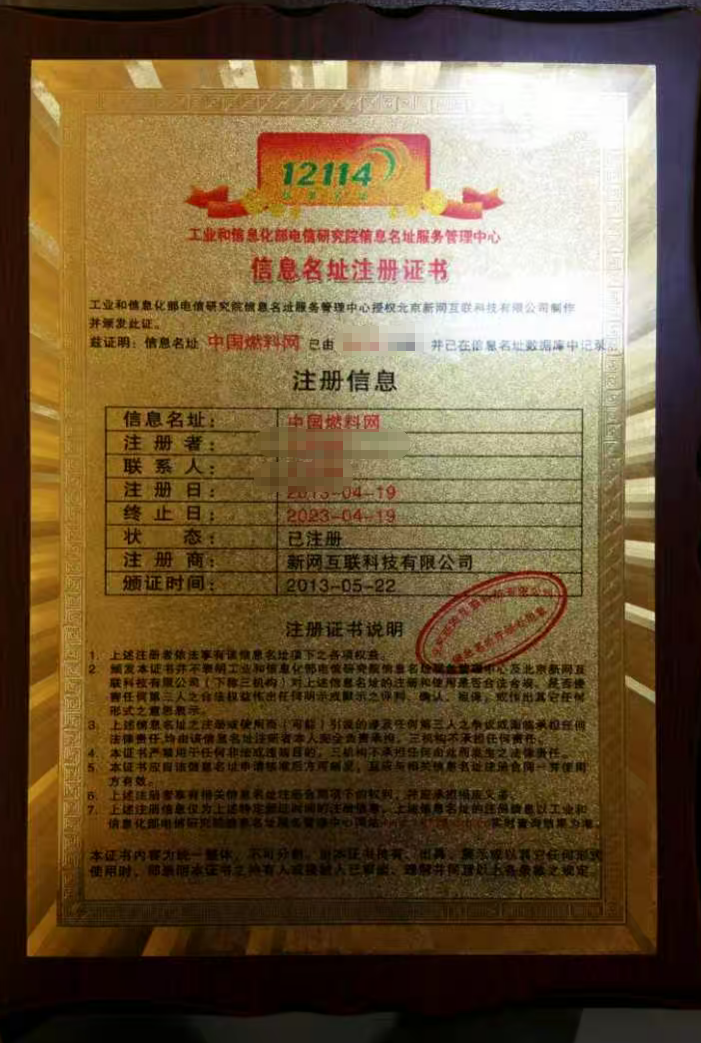 12114
工业和信息化部电信研究院信息名址服务管理中心
信息名址注册证书
工业和信息化部电信研究院信息名址服务管理中心授权北京新网互联科技有限公司制作
并颁发此证。
兹证明：信息名址 中国燃料网 已由 并已在信息名址数据库中记录
注册信息
信息名址： 中国燃料网
注 册 者：
联 系 人：
注 册 日： 2013-04-19
终 止 日： 2023-04-19
状 态： 已注册
注 册 商： 新网互联科技有限公司
颁证时间： 2013-05-22
注册证书说明
1. 上述注册者依法享有该信息名址项下之各项权益。
2. 颁发本证书并不表明工业和信息化部电信研究院信息名址服务管理中心及北京新网互
联科技有限公司（下称三机构）对上述信息名址的注册和使用是否合法合规、是否侵
害任何第三人之合法权益作出任何明示或默示之评判、确认、担保，或作出其它任何
形式之意思表示。
3. 上述信息名址之注册或使用而（可能）引发的涉及任何第三人之争议或面临承担任何
法律责任,均由该信息名址注册者本人完全负责承担，三机构不承担任何责任。
4. 本证书严禁用于任何非法或违规目的，三机构不承担任何由此而发生之法律责任。
5. 本证书应自该信息名址申请核准后方可制发，且应与相关信息名址注册合同一并使用
方有效。
6. 上述注册者享有相关信息名址注册合同项下的权利，并应承担相应义务。
7. 上述注册信息仅为上述特定颁证时间的注册信息，上述信息名址的注册信息以工业和
信息化部电信研究院信息名址服务管理中心网站 实时查询结果为准。
本证书内容为统一整体，不可分割。对本证书持有、出具、展示或以其它任何形式
使用时，即表明本证书之持有人或接触人已审阅、理解并同意以上各条款之规定。